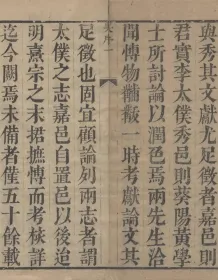 與秀其文獻尤足徵者嘉邑則
君實李太僕秀邑則葵陽黃學
士所討論以潤色焉兩先生洽
聞博物黼黻一時考獻論文其
足徵也固宜顧論列兩志者謂
太僕之志嘉邑自置邑以後迨
明熹宗之末捃摭博而考核詳
迄今闕焉未備者僅五十餘載